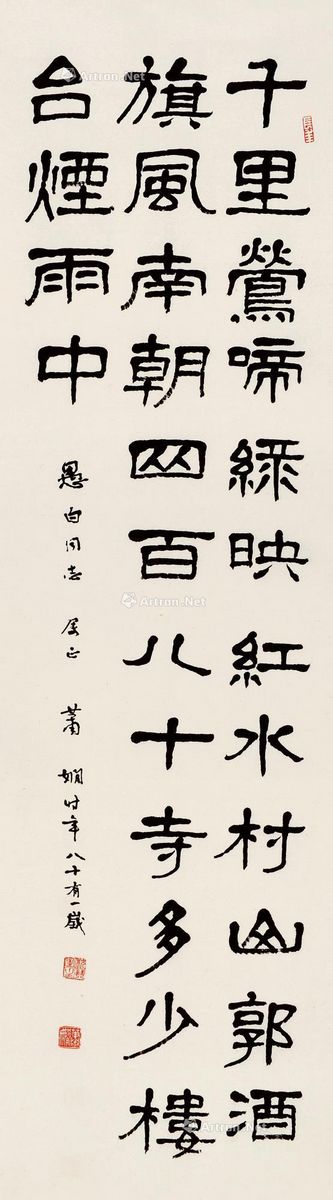 千里鶯啼綠映紅水村山郭酒
旗風南朝四百八十寺多少樓
台煙雨中
愚白同志 屬正 蕭嫻時年八十有一歲
Artron.Net
Artron.Net
Artron.Net